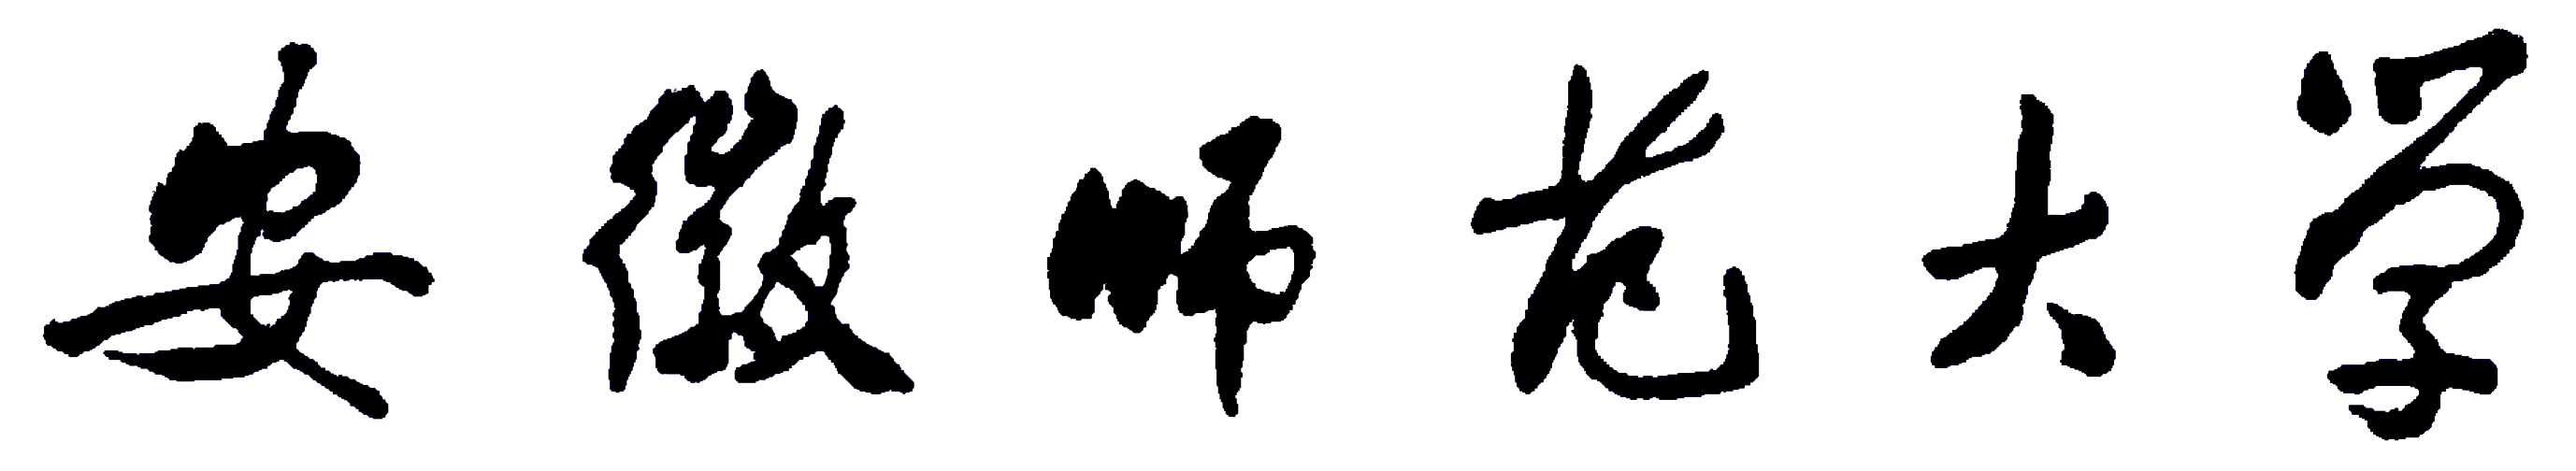 安徽师范大学